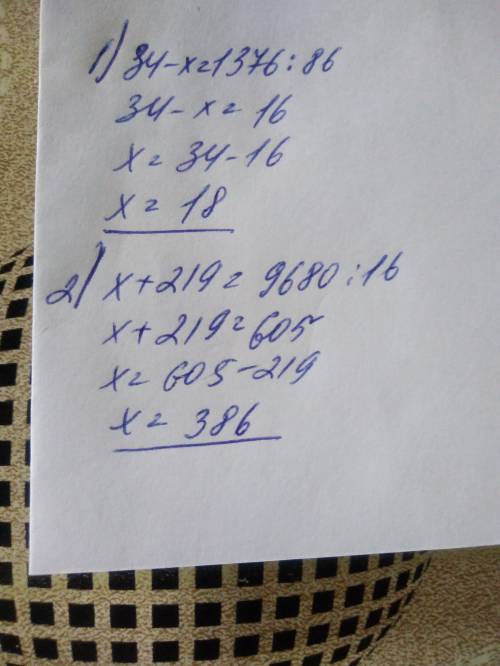 1) 34-x=1376:86
34-x=16
x=34-16
x=18
2) x+219=9680:16
x+219=605
x=605-219
x=386